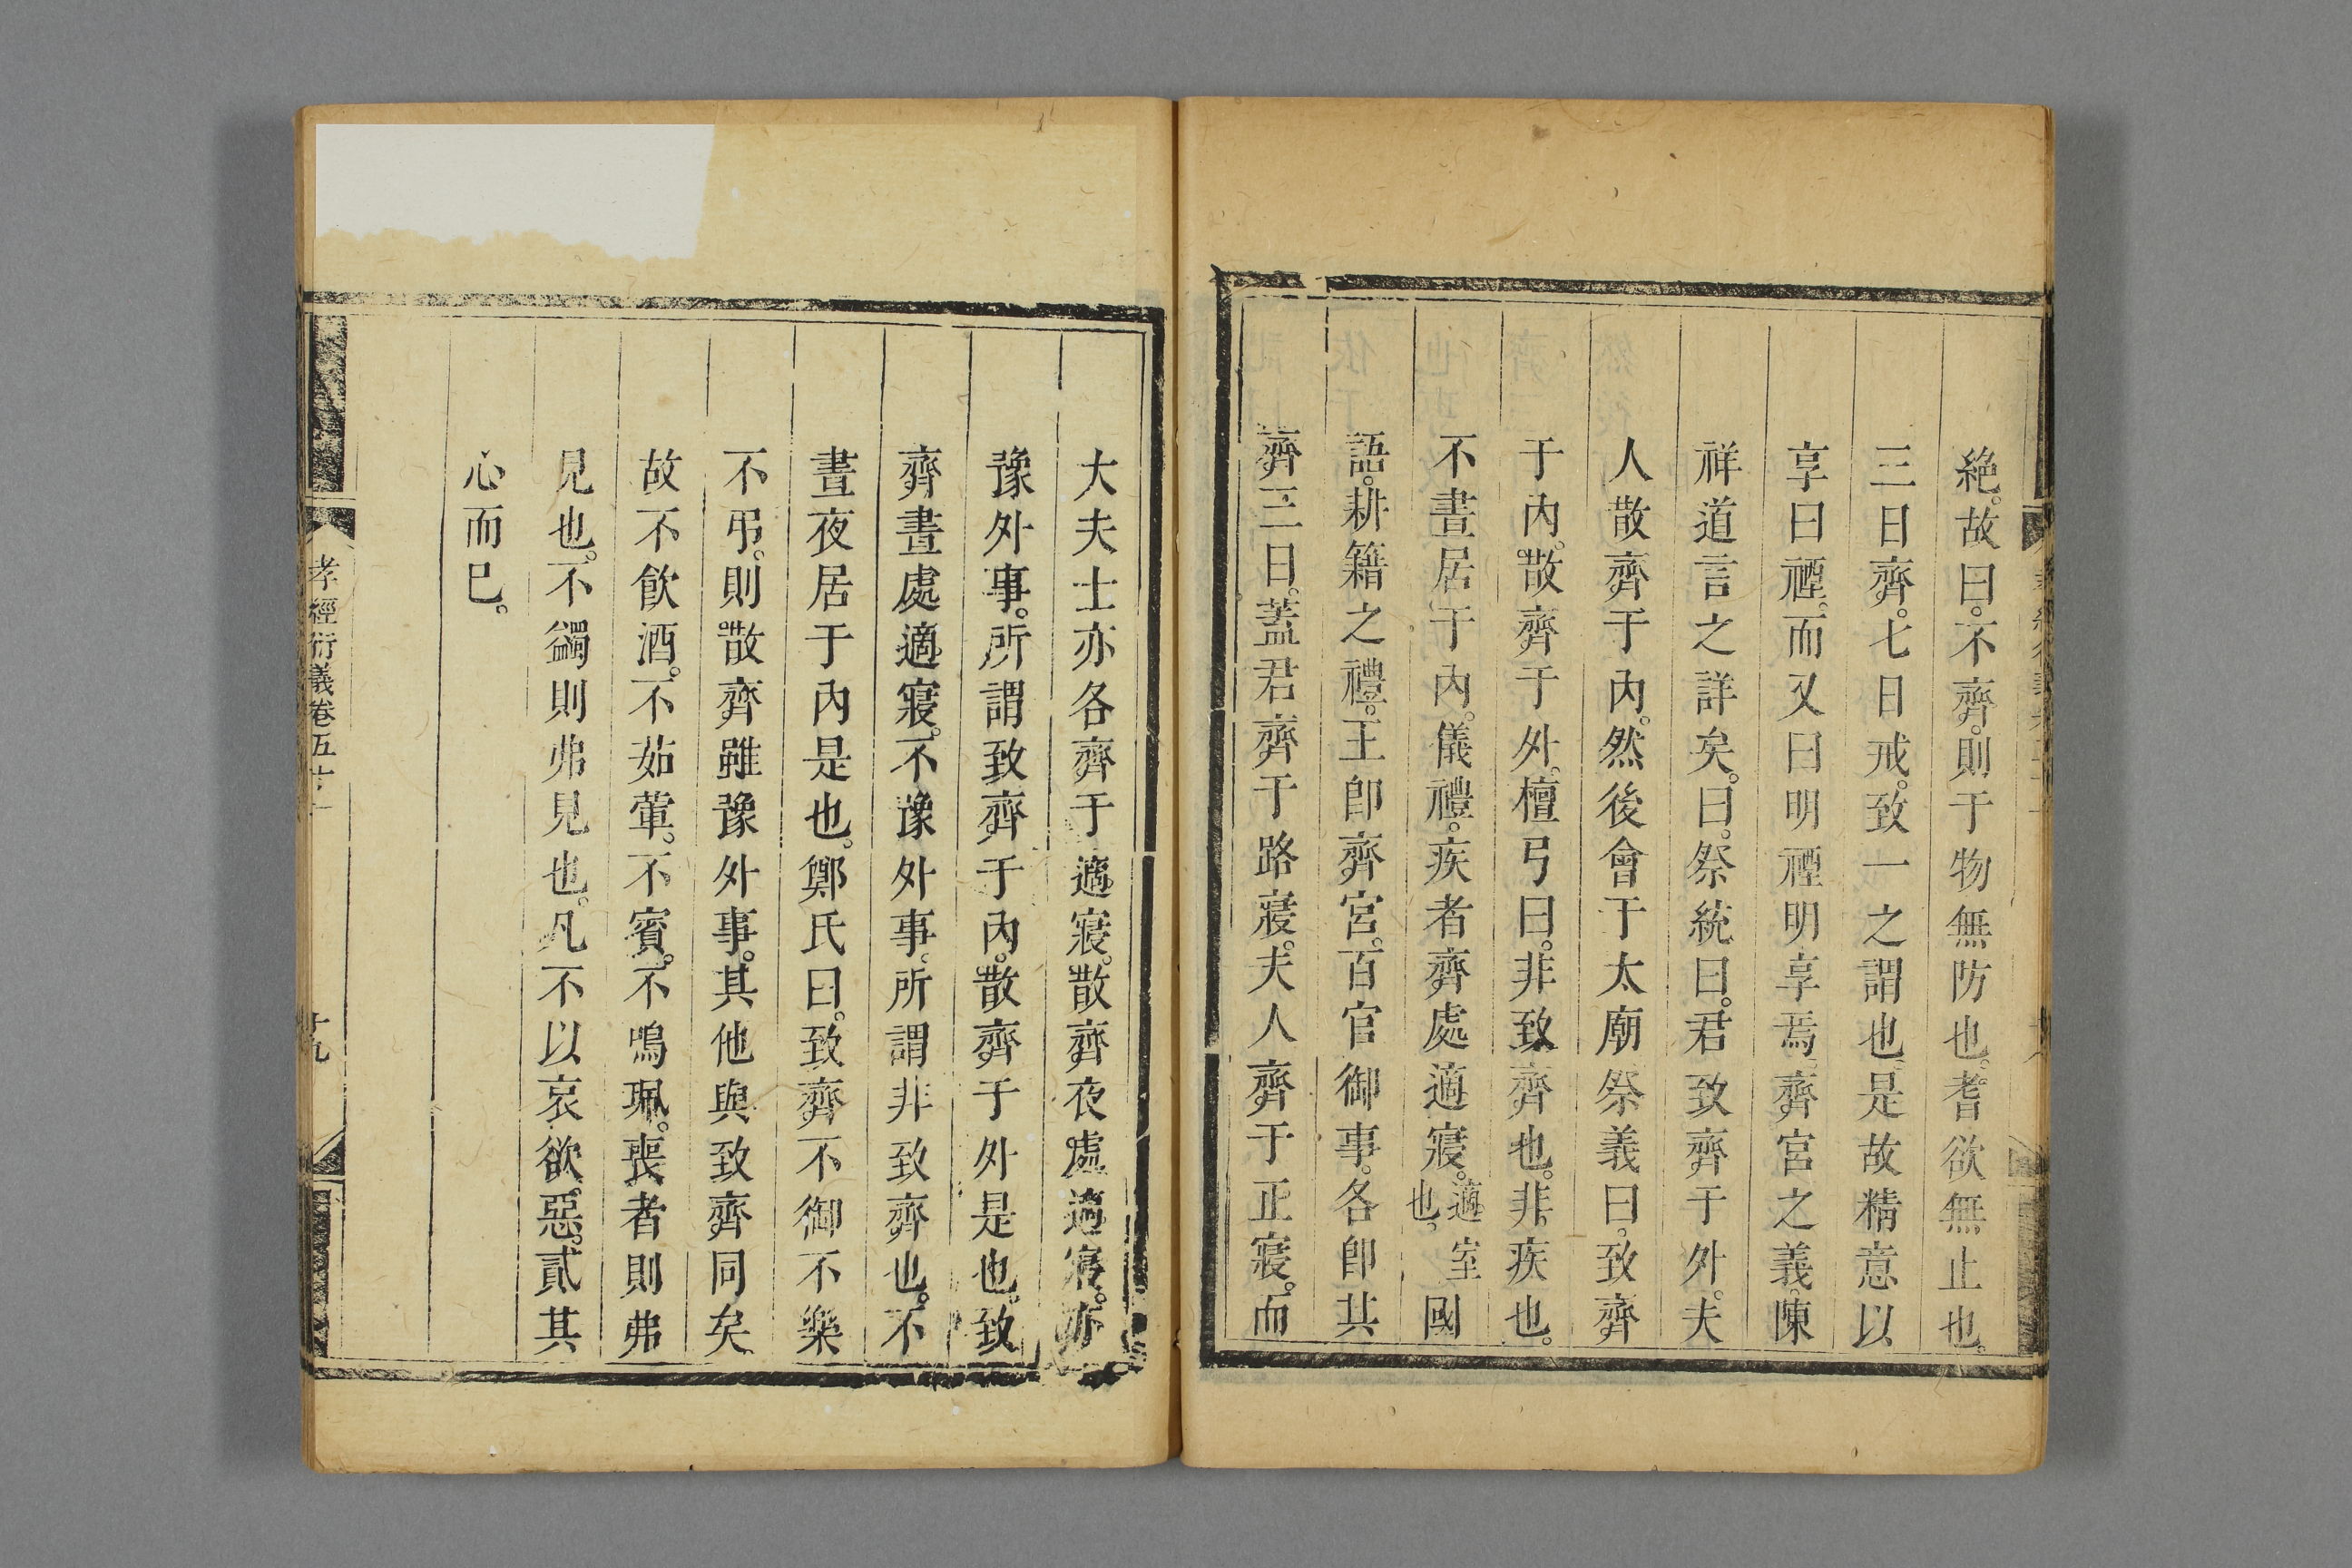 絶。故曰。不齊。則于物無防也。耆欲無止也。
三日齊。七日戒。致一之謂也。是故精意以
享曰禋。而又曰明禋明享焉。齊宮之義。陳
祥道言之詳矣。曰。祭統曰。君致齊于外。夫
人散齊于內。然後會于太廟祭義曰。致齊
于內。散齊于外。檀弓曰。非致齊也。非疾也。
不晝居于內。儀禮。疾者齊處適寢。適室也。國
語。耕籍之禮。王卽齊宮。百官御事。各卽其
齊三日。蓋君齊于路寢。夫人齊于正寢。而
大夫士亦各齊于適寢。散齊夜處適寢。亦
豫外事。所謂致齊于內。散齊于外是也。致
齊晝處適寢。不豫外事。所謂非致齊也。不
晝夜居于內是也。鄭氏曰。致齊不御不樂
不弔。則散齊雖豫外事。其他與致齊同矣
故不飲酒。不茹葷。不賓。不鳴珮。喪者則弗
見也。不蠲則弗見也。凡不以哀欲。惡。貳其
心而巳。
孝經衍義卷五十一
十九